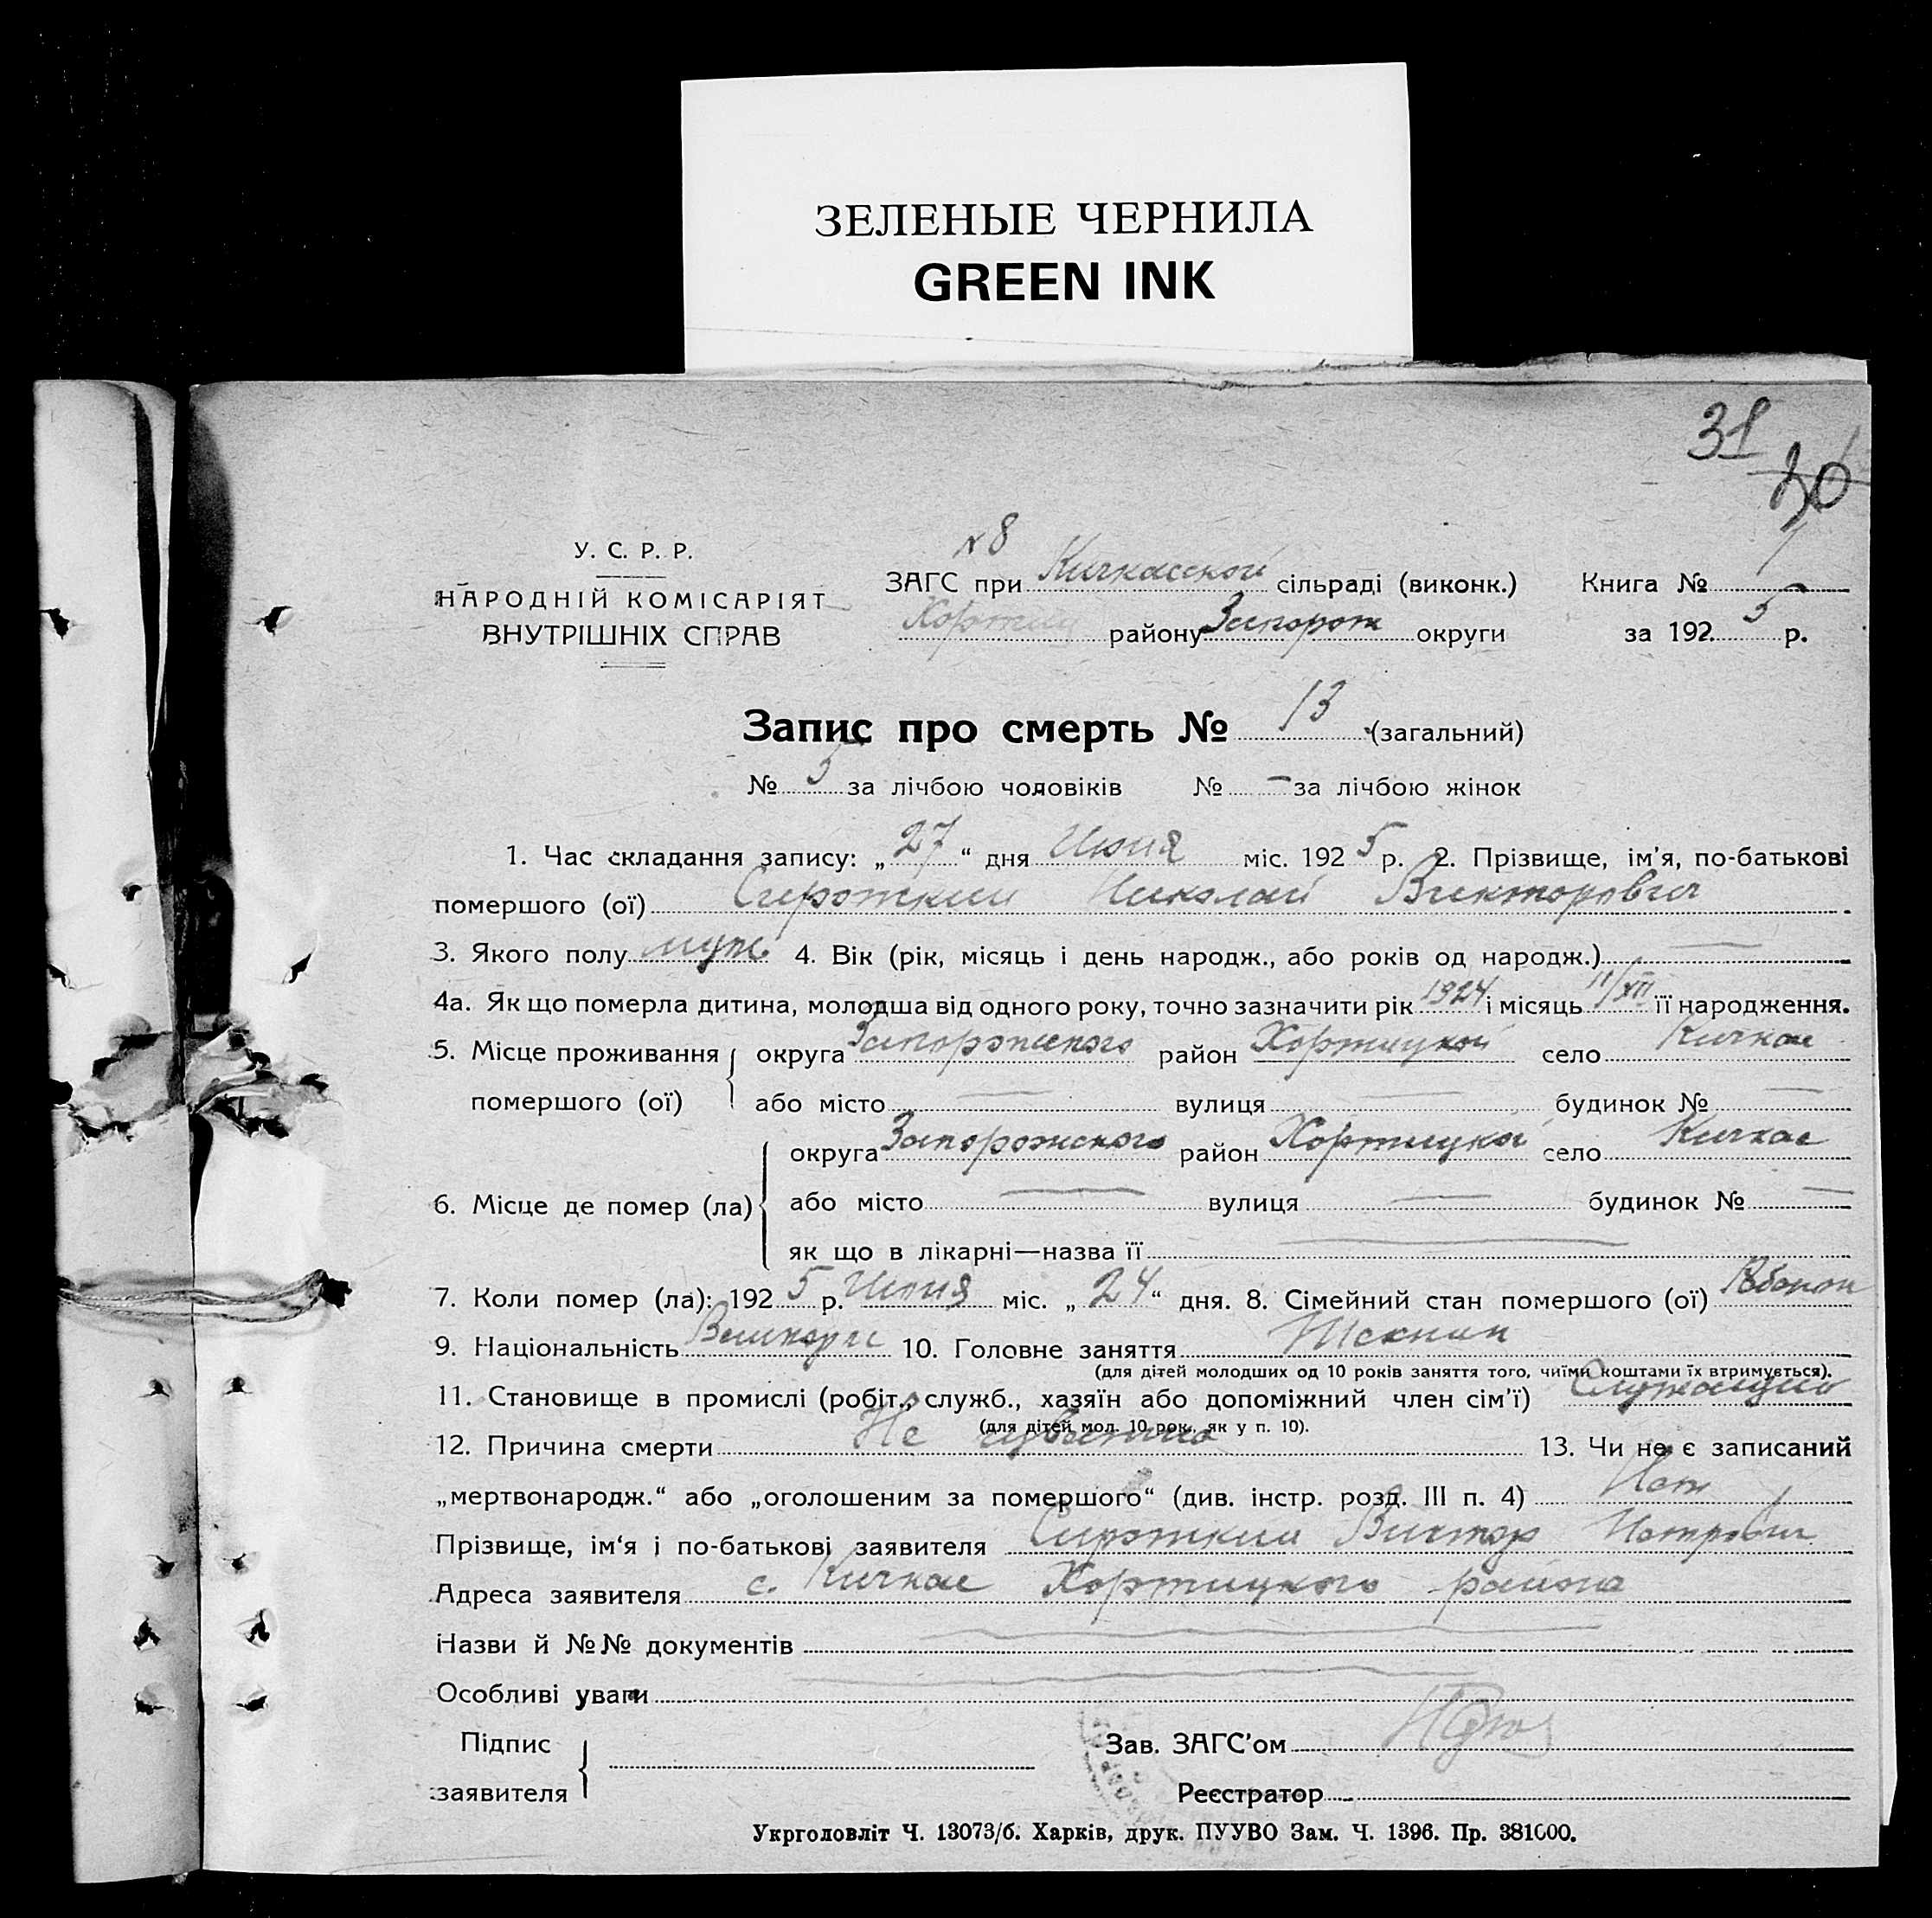 ЗЕЛЕНЫЕ ЧЕРНИЛА
GREEN INK
31
30
У. С. Р. Р.
НАРОДНІЙ КОМІСАРІЯТ
ВНУТРІШНІХ СПРАВ
№ 8
ЗАГС при Кичкасской сільраді (виконк.) Книга №
Хортиц району Запорож округи за 192 5 р.
Запис про смерть № 13 (загальний)
№ 5 за лічбою чоловіків № — за лічбою жінок
1. Час складання запису: „ 27 “ дня Июня міс. 192 5 р. 2. Прізвище, ім’я, по-батькові
помершого (ої) Сироткин Николай Викторович
3. Якого полу муж 4. Вік (рік, місяць і день народж., або років од народж.) —
4а. Як що померла дитина, молодша від одного року, точно зазначити рік 1924 і місяць 11/XII її народження.
5. Місце проживання округа Запорожского район Хортицкой село Кичкас
помершого (ої) або місто — вулиця — будинок № —
округа Запорожского район Хортицкой село Кичкас
6. Місце де помер (ла) або місто — вулиця — будинок № —
як що в лікарні—назва її —
7. Коли помер (ла): 192 5 р. Июня міс. „ 24 “ дня. 8. Сімейний стан помершого (ої)
9. Національність Великорос 10. Головне заняття
(для дітей молодших од 10 років заняття того, чиїми коштами їх втримується).
11. Становище в промислі (робіт., служб., хазяїн або допоміжний член сім’ї) Служащий
(для дітей мол. 10 рок. як у п. 10).
12. Причина смерти Не известно 13. Чи не є записаний
„мертвонародж.“ або „оголошеним за помершого“ (див. інстр. розд. III п. 4) Нет
Прізвище, ім‘я і по-батькові заявителя Сироткин Виктор Петрович
Адреса заявителя с. Кичкас Хортицкого района
Назви й №№ документів —
Особливі уваги —
Підпис
заявителя
Зав. ЗАГС’ом
Реєстратор
Укрголовліт Ч. 13073/б. Харків, друк. ПУУВО Зам. Ч. 1396. Пр. 381000.